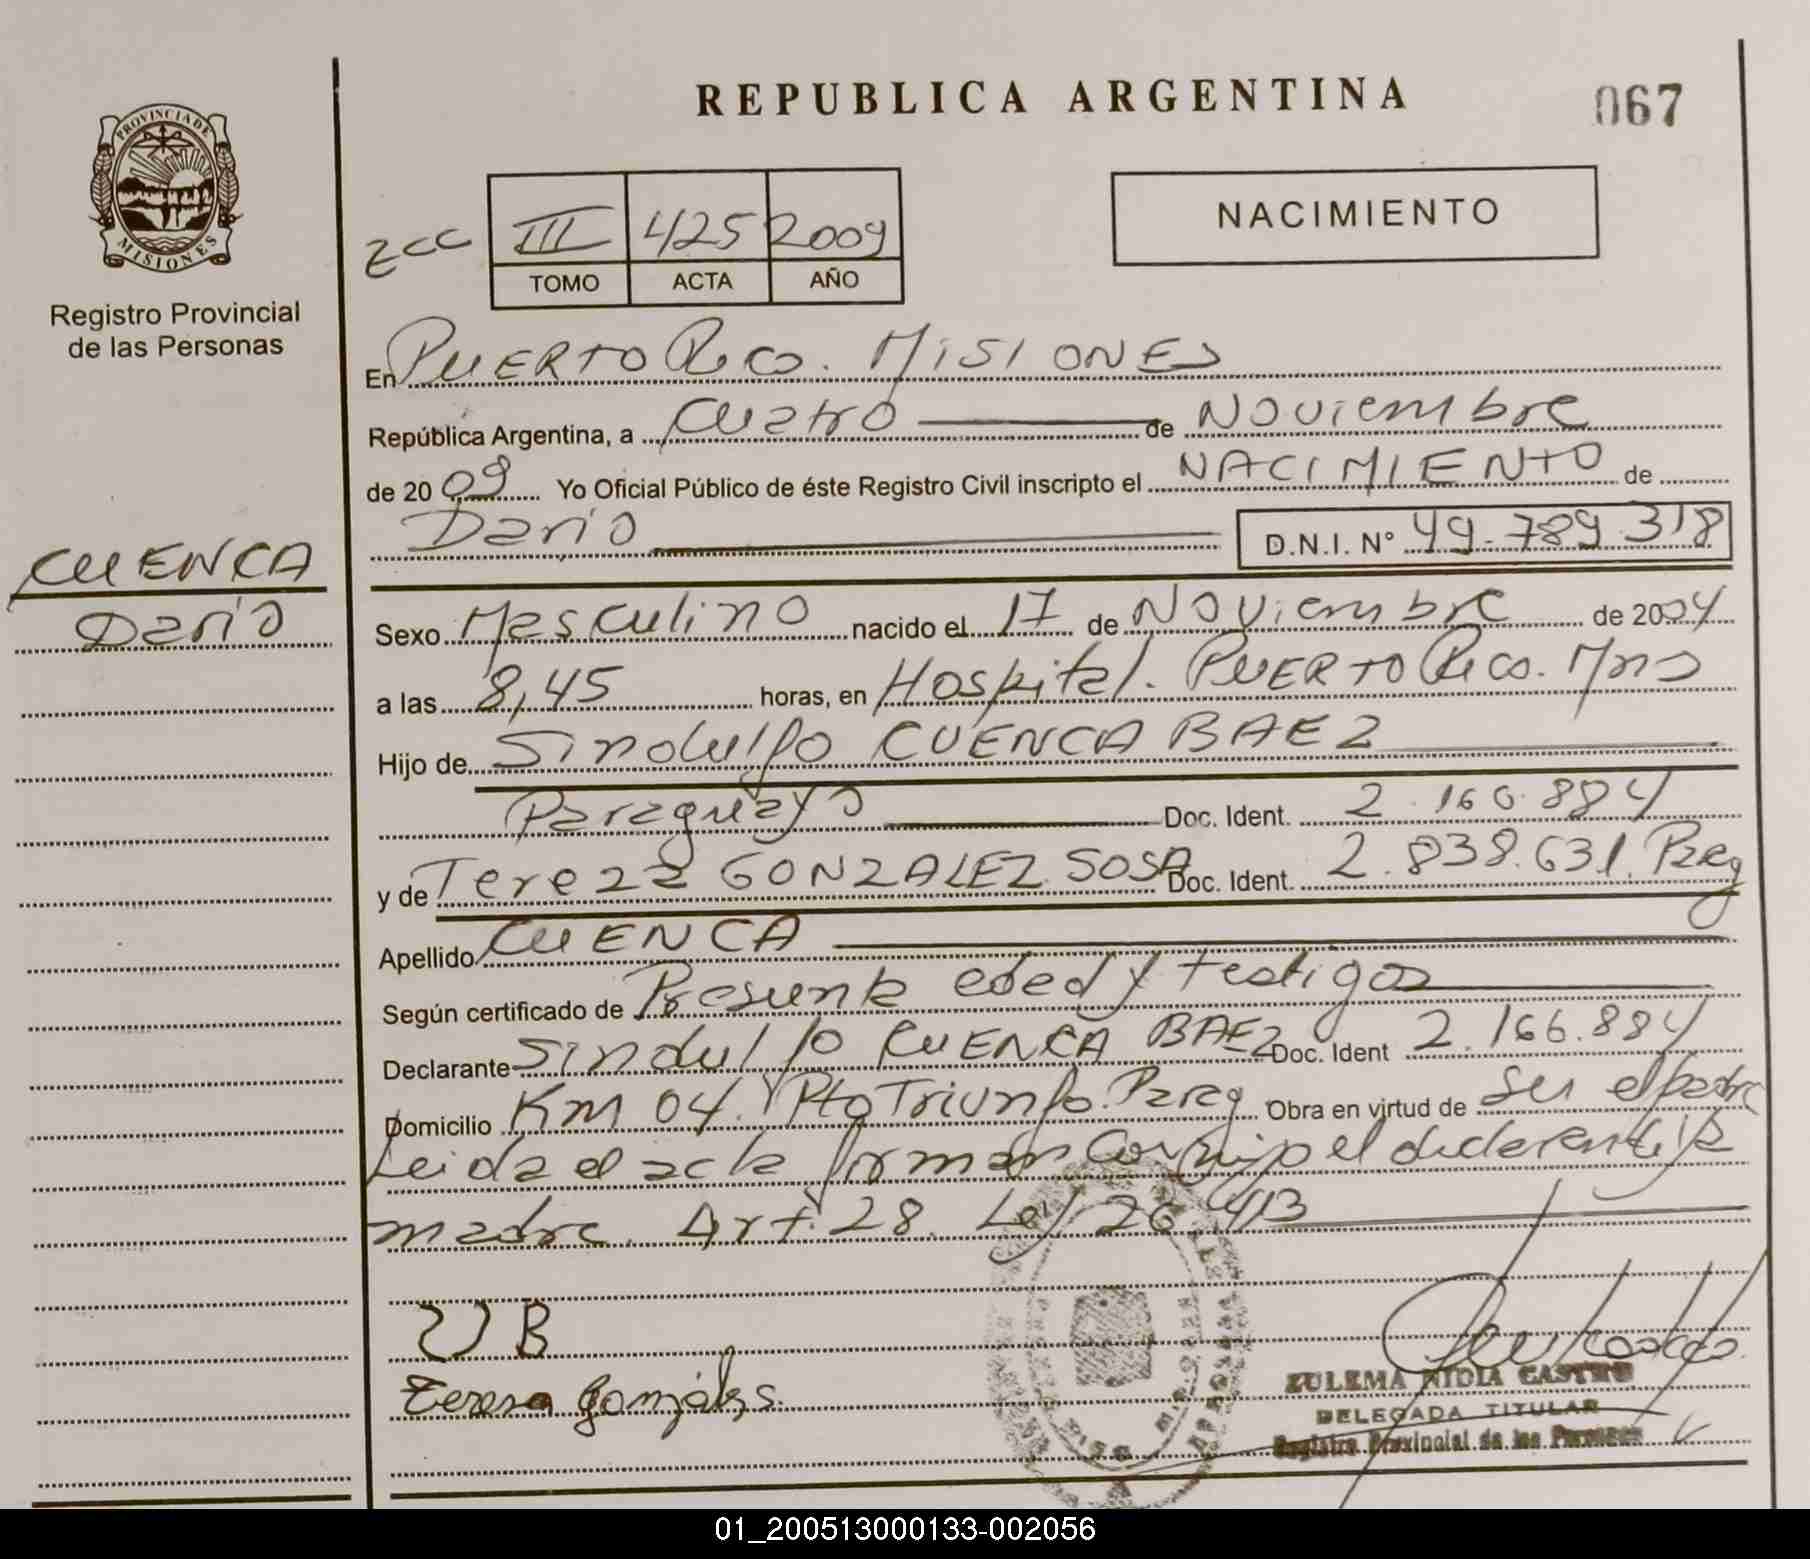 REPUBLICA ARGENTINA
067
PROVINCIA DE
MISIONES
Registro Provincial
de las Personas
NACIMIENTO
III 425 2009
TOMO ACTA AÑO
En PUERTO Rico. MISIONES
República Argentina, a Cuatro de Noviembre
de 2009 Yo Oficial Público de éste Registro Civil inscripto el NACIMIENTO de
Dario D.N.I. Nº 49.789.318
CUENCA
Dario
Sexo Masculino nacido el 17 de Noviembre de 2004
a las 8,45 horas, en Hospital. PUERTO Rico. Mns
Hijo de Sindulfo CUENCA BAEZ
Paraguayo Doc. Ident. 2.166.884
y de Tereza GONZALEZ SOSA Doc. Ident. 2.838.631. Parag
Apellido CUENCA
Según certificado de Presunta edad y testigos
Declarante Sindulfo CUENCA BAEZ Doc. Ident 2.166.884
Domicilio Km 04. Pto Triunfo. Parag Obra en virtud de ser el padre
Leida el acta firman conmigo el declarante y la
madre. Art. 28. Ley 26.413
Teresa Gonzáles.
ZULEMA NIDIA CASTRO
DELEGADA TITULAR
Registro Provincial de las Personas
01_200513000133-002056